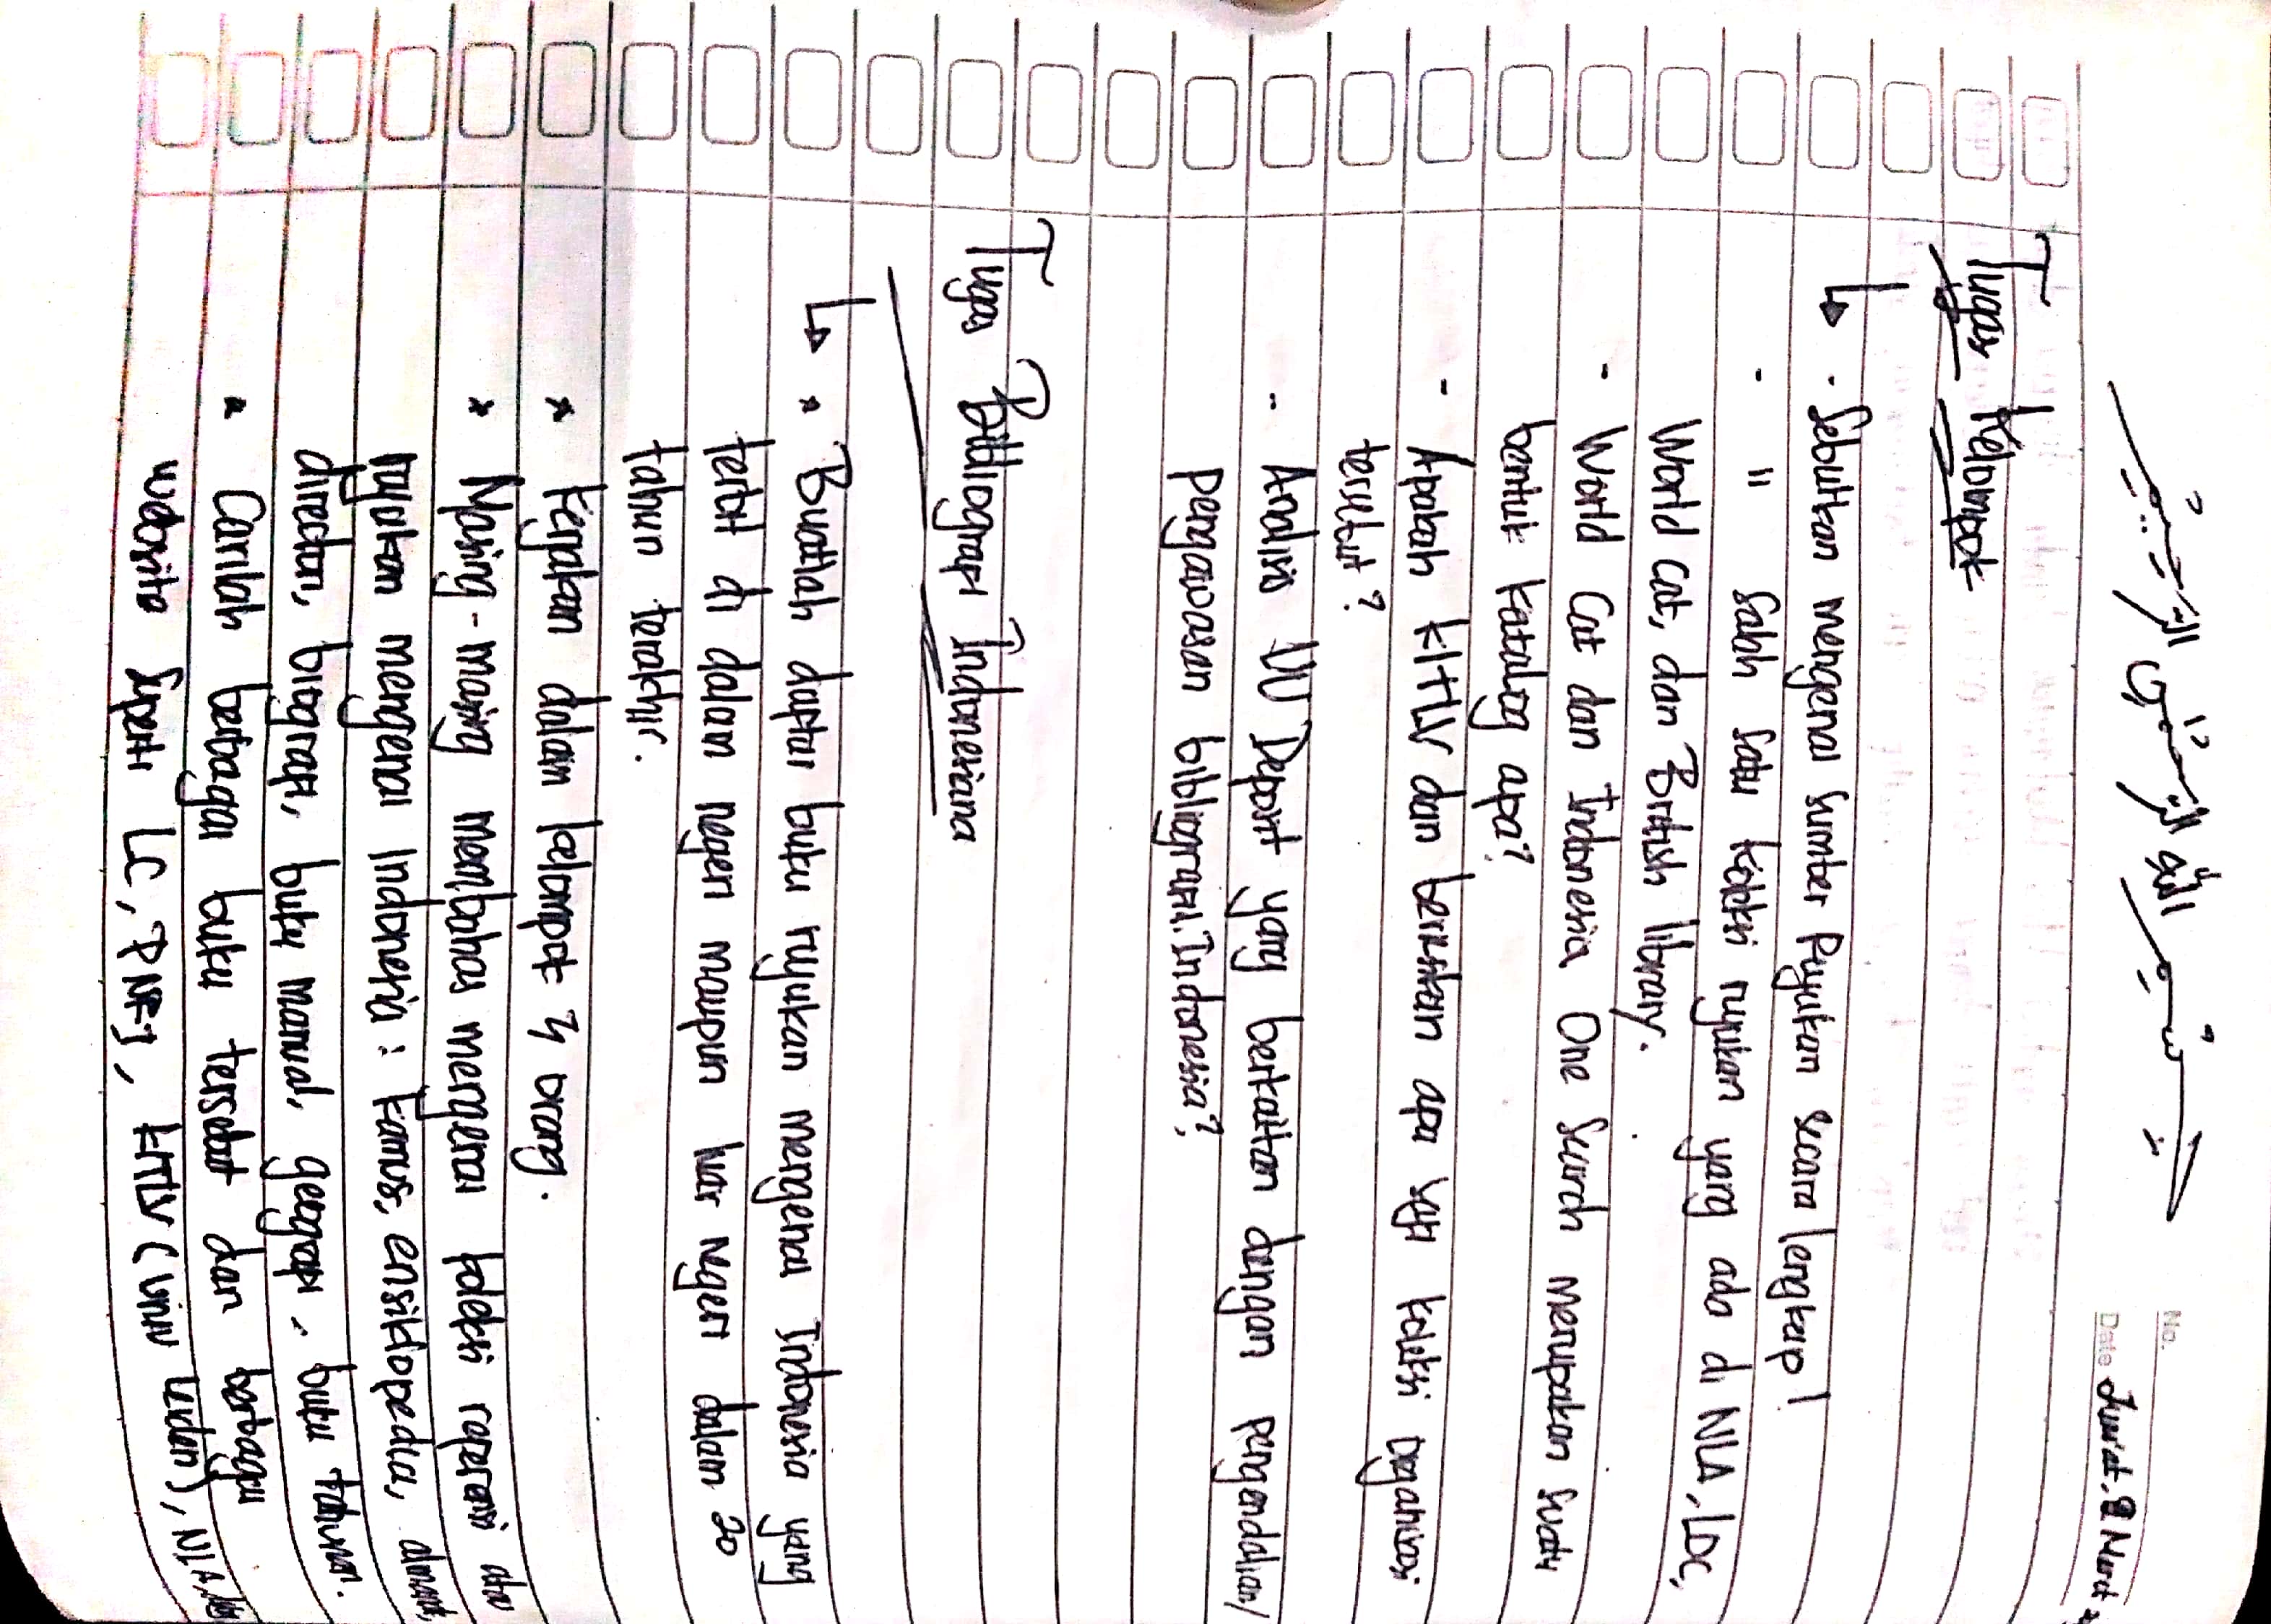 بسم الله الرحمن الرحيم
No.
Date Jum'at, 8 Maret
Tugas Kelompok
↳ - Sebutkan mengenai sumber Rujukan secara lengkap!
- " salah satu koleksi rujukan yang ada di NLA, LOC,
World Cat, dan British library.
- World Cat dan Indonesia One Search merupakan suatu
bentuk katalog apa?
- Apakah KITLV dan berisikan apa saja koleksi Organisasi
tersebut?
- Analisis UU Deposit yang berkaitan dengan pengendalian/
pengawasan bibliografi Indonesia?
Tugas Bibliografi Indonesiana
↳ * Buatlah daftar buku rujukan mengenai Indonesia yang
terbit di dalam negeri maupun luar negeri dalam 20
tahun terakhir.
* Kerjakan dalam kelompok 4 orang.
* Masing-masing membahas mengenai koleksi referensi atau
rujukan mengenai Indonesia: kamus, ensiklopedia,
directori, biografi, buku manual, geografi, buku tahunan.
* Carilah berbagai buku tersebut dari berbagai
website seperti LC, PNRI, KITLV (Univ Leiden), NLA,